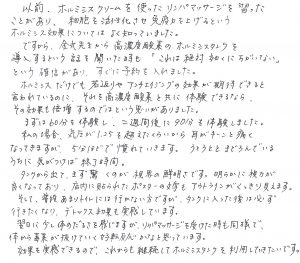 以前、ホルミシスクリームを使ったリンパマッサージを習った
ことがあり、細胞を活性化させ免疫力を上げるという
ホルミシス効果については よく知っていました。
ですから、金先生から高濃度酸素のホルミシスタンクを
導入するという話を聞いた時も「これは絶対 効くにちがいない」
という確信があり、すぐに予約を入れました。
ホルミシスだけでも 若返りやアンチエイジングの効果が期待できると
言われているのに、それを高濃度酸素と共に体験できるなら、
その効果も倍増するのではという思いがありました。
まずは60分を体験し、二週間後に90分を体験しました。
私の場合、気圧が1.25を超えたくらいから 耳がキーンと痛く
なってきますが、5分ほどで慣れていきます。うとうととまどろんでいる
うちに 気がつけば 終了時間。
タンクから出て、まず驚くのが 視界の鮮明さです。明らかに視力が
良くなっており、店内に貼られたポスターの文字も アウトラインがくっきり見えます。
そして、普段あまりトイレには行かない方ですが、タンクに入った後は必ず
行きたくなり、デトックス効果も実感しています。
翌日に少し体のだるさを感じますが、リンパマッサージを受けた時も同様で、
体から毒素が抜けていく好転反応かなと思っています。
効果を実感できるので、これからも継続してホルミシスタンクを利用していきたいです。